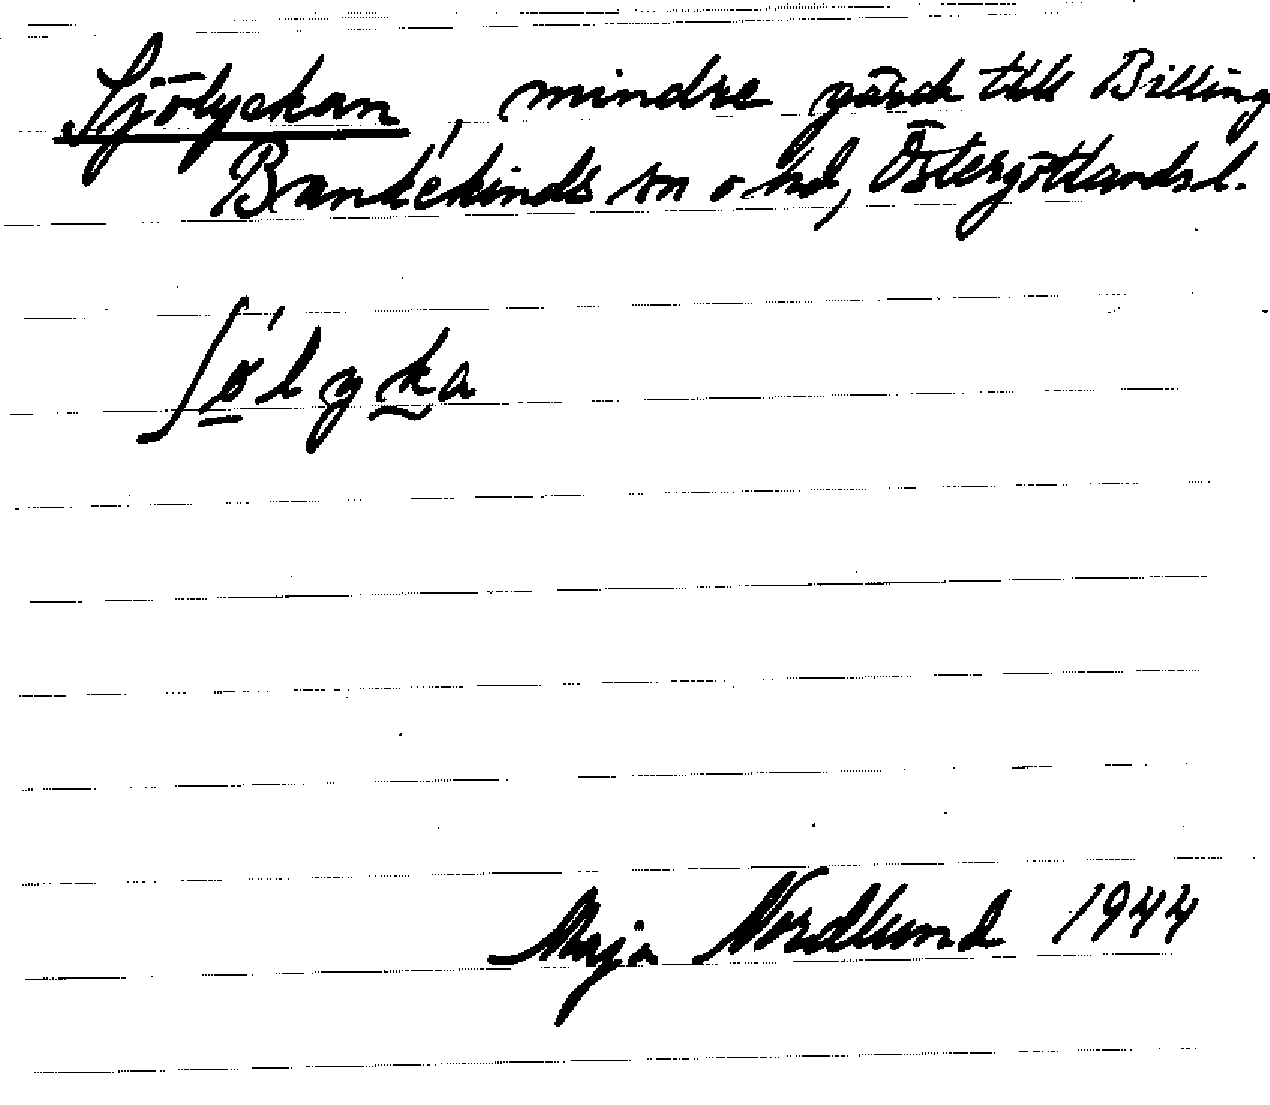 Sjölyckan, mindre gård till Billing
Bankekinds sn o hd, Östergötlands l.
ʃølyka
Maja Nordlund 1944